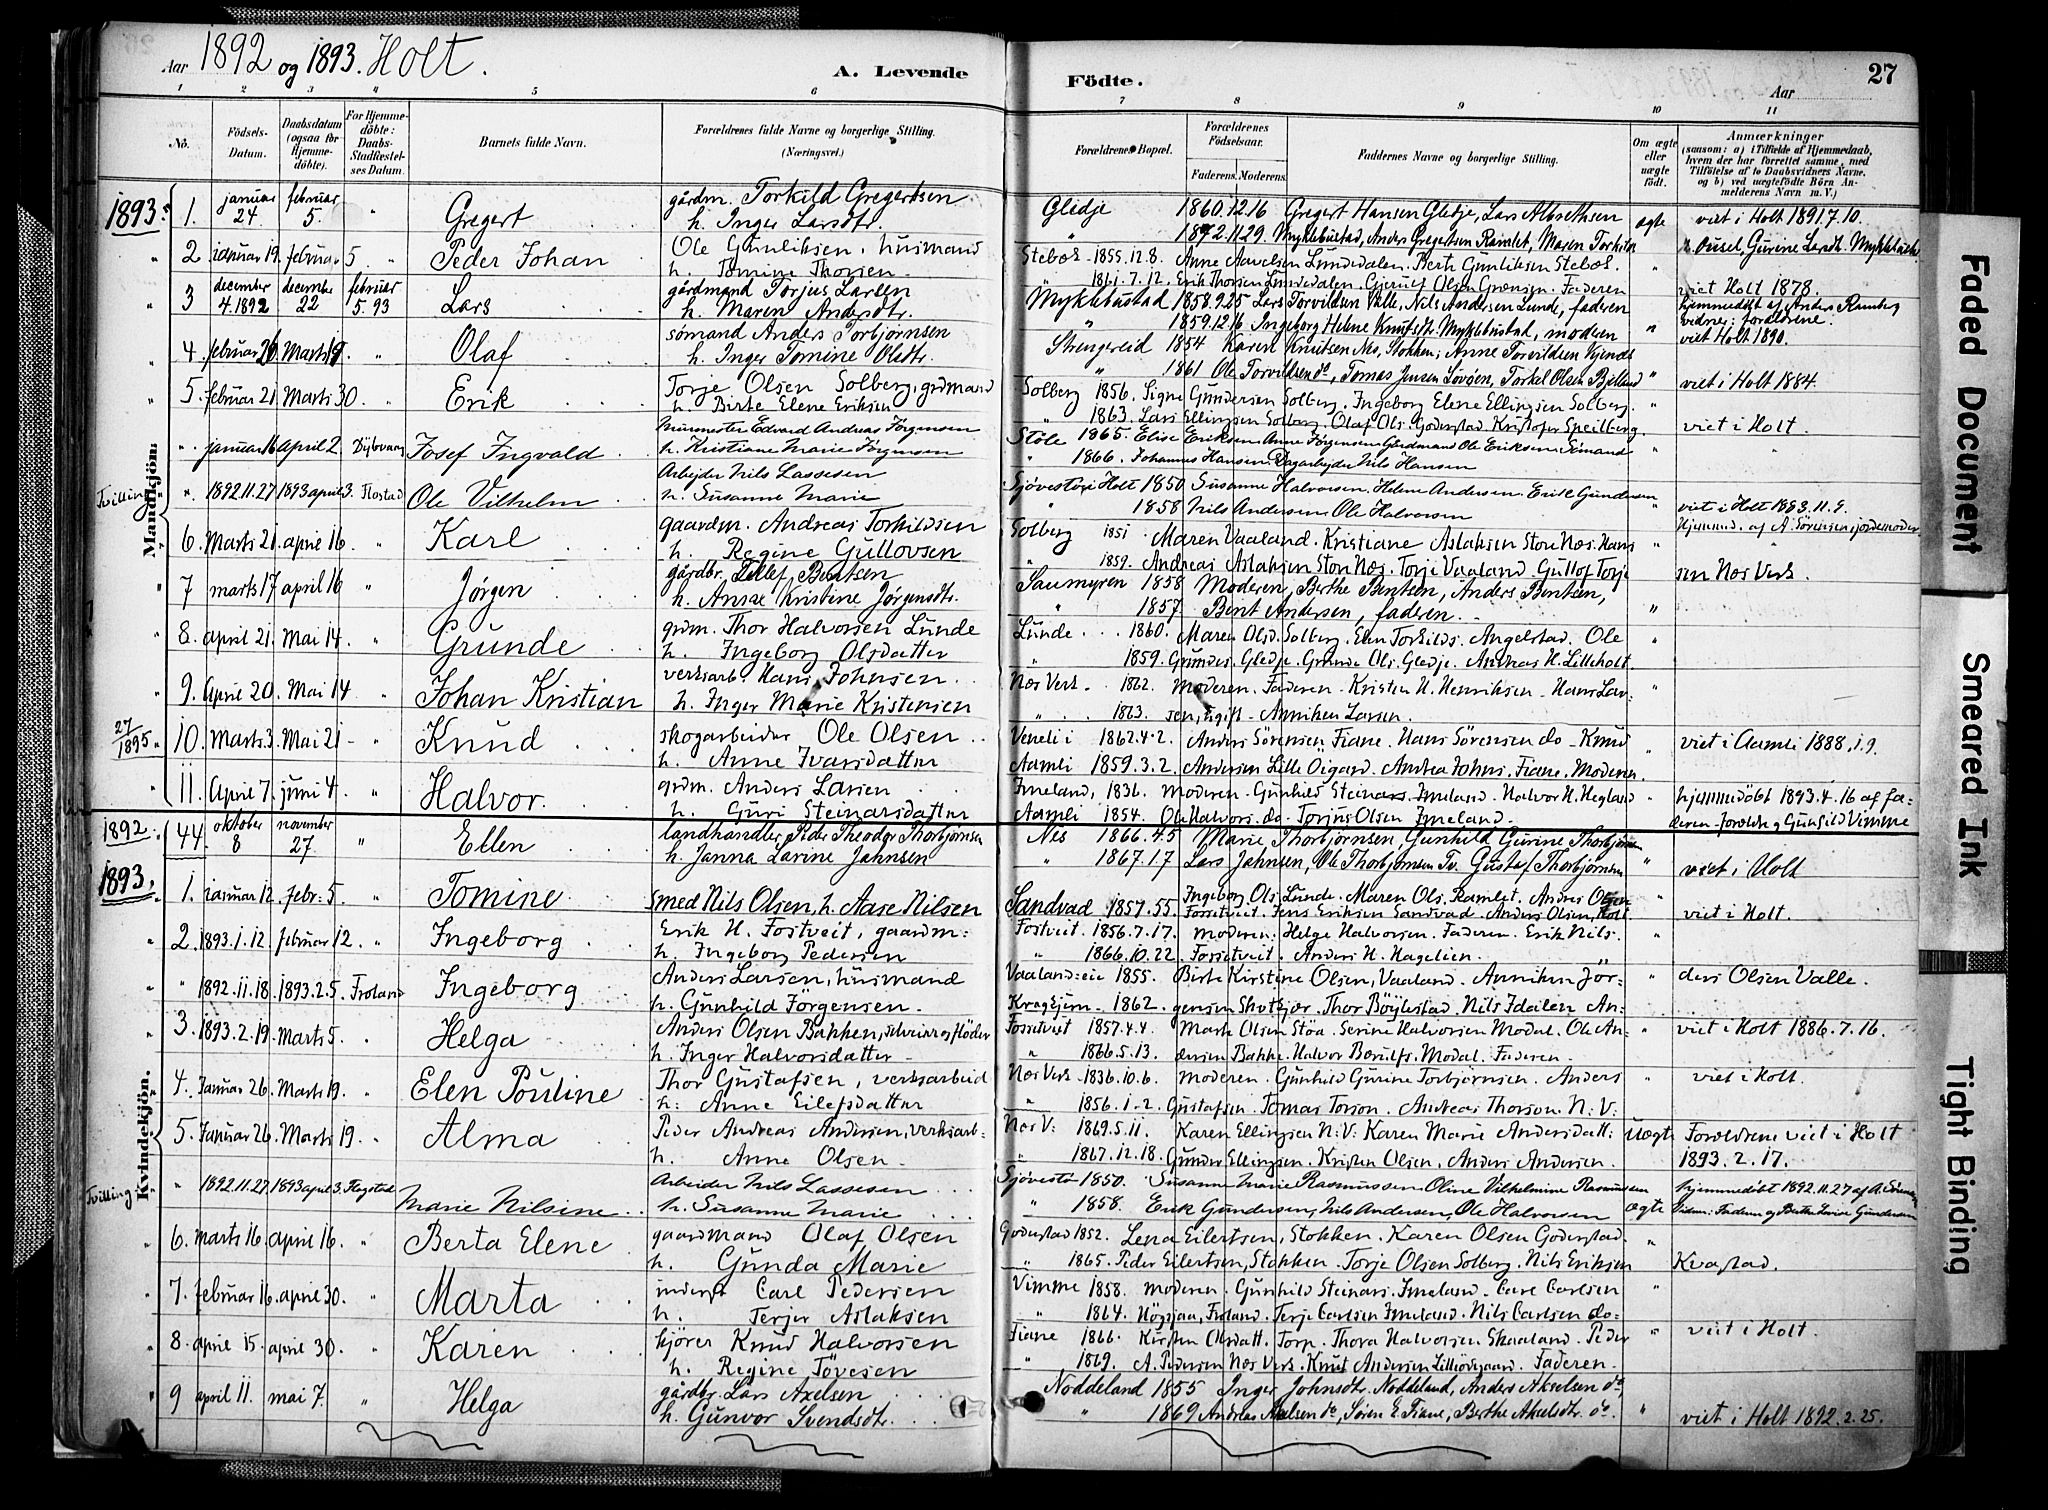 Aar 1892 og 1893. Holt.
A. Levende Födte.
27
Aar
1 2 3 4 5 6 7 8 9 10 11
No.
Födsels-Datum.
Daabsdatum (ogsaa for Hjemme-döbte).
For Hjemme-döbte: Daabs-Stadfæstel-ses Datum.
Barnets fulde Navn.
Forældrenes fulde Navne og borgerlige Stilling. (Næringsvei.)
Forældrenes Bopæl.
Forældrenes Födselsaar.
Faderens. Moderens.
Faddernes Navne og borgerlige Stilling.
Om ægte eller uægte födt.
Anmærkninger
(saasom: a) i Tilfælde af Hjemmedaab, hvem der har forrettet samme, med Tilföielse af to Daabsvidners Navne, og b) ved uægtefödte Börn An-melderens Navn m. V.)
Mandkjön.
1893. 1. januar 24. februar 5. " Gregert gårdm. Torkild Gregertsen Gledje 1860.12.16 Gregert Hansen Gledje, Lars Albrethsen ægte viet i Holt 1891.7.10.
h. Inger Larsdtr. " 1872.11.29. Myklebustad, Anders Gregertsen Ramlet, Maren Torkilds
" 2 januar 19. februar 5 " Peder Johan Ole Gunliksen, husmand Stebæk 1855.12.8. Anne Aavelsen Lundedalen. Berte Gunliksen Stebæk. "
h. Tomine Thorsen " 1861.7.12. Erik Thorsen Lundedalen. Gjerulf Olsen Grænsen. Faderen viet Holt 1878.
" 3 december 4. 1892 december 22 februar 5. 93 Lars gårdmand Torjus Larsen Myklebustad 1858.9.25 Lars Torvildsen Valle, Nils Andersen Lunde, faderen hjemmedøbt af Anders Ramberg
h. Maren Andersdtr. " 1859.12.16 Ingeborg Helene Knutsdtr. Myklebustad, moderen " vidner: forældrene.
" 4. februar 20 Marts 19. " Olaf sømand Anders Torbjørnsen Strengereid 1854 Karen Knutsen Nes, Stokken; Anne Torvildsen viet Holt 1890.
h. Inger Tomine Olsdtr. " 1861 Ole Torvildsen do, Tomas Jensen Løvøen, Torkel Olsen "
" 5. februar 21 Marts 30. " Erik Torje Olsen Solberg, grdmand Solberg 1856. Signe Gundersen Solberg. Ingeborg Elene Ellingsen Solberg. " viet i Holt 1884.
h. Birte Elene Eriksen " 1863. Lars Ellingsen Solberg. Olaf Ols. Goderstad. Kristofer
" " januar 16 april 2. Dybvaag Josef Ingvald Murmester Edvard Andreas Jørgensen Støle 1865. Elise Eriksen Anne Jørgensen Gardmand Ole Eriksen Sømand " viet i Holt.
h. Kristiane Marie Jørgensen " 1866. Johannes Hansen. Dagarbejder Nils Hansen
Tvilling " 1892.11.27 1893 april 3. Flostad Ole Vilhelm Arbejder Nils Lassesen 1850. Susanne Halvorsen. Helene Andersen. Erik Gundersen "
h. Susanne Marie " 1858 Nils Andersen Ole Halvorsen viet i Holt
6. Marts 21. april 16 " Karl gaardm. Andreas Torkildsen Solberg 1851 Maren Vaaland. Kristiane Aslaksen Store Næs. Hans "
h. Regine Gullovsen " 1859. Andreas Aslaksen Store Næs. Torje Vaaland. Gullof Torje sen Næs Verk.
" 7 marts 17 april 16 " Jørgen gårdbr. Tellef Bentsen Saumyren 1858 Moderen, Berthe Bentsen, Anders Bentsen,
h. Kristine Jørgensdtr. " 1857 Bent Andersen, faderen. "
" 8. april 21. Mai 14. " Grunde grdm. Thor Halvorsen Lunde Lunde 1860. Maren Olsd. Solberg. Elen Torkilds. Angelstad. Ole "
h. Ingeborg Olsdatter " 1859. Grundes. Gledje. Grunde Ols. Gledje. Andreas H. Lilleholt
" 9. April 20. Mai 14 " Johan Kristian verksarb. Hans Johnsen Næs Verk. 1862. Moderen. Faderen. Kristen H. Henriksen. Hans Lar- "
h. Inger Marie Kristensen " 1863. sen, ugift. Anniken Larsen.
27/1895 " 10. Marts 3. Mai 21 " Knud skogarbeider Ole Olsen Veneli i 1862.4.2. Anders Sörensen Fiane. Hans Sörensen do. Knud " viet i Aamli 1888.1.9.
h. Anne Ivarsdatter Aamli 1859.3.2. Andersen Lille Öigard. Andrea Johns. Fiane. Moderen.
" 11. April 7. juni 4 " Halvor. grdm. Anders Larsen Imeland, 1836. moderen. Gunhild Steinars. Imeland. Halvor H. Hegland " hjemmedöbt 1893.4.16 af fa-
h. Guri Steinarsdatter Aamli 1854. Ole Halvors. do. Torjus Olsen Imeland. deren. forældre og Gunhild Vimme
Kvindekjön.
1892. 44 oktober 8 november 27. " Ellen landhandler Peder Theodor Thorbjørnsen Nes 1866.4.5 Marie Thorbjørnsen, Gunhild Gurine Thorbjørnsen
h. Janna Lavine Jahnsen " 1867.1.7 Lars Jahnsen, Ole Thorbjørnsen Tv. Gustaf Thorbjørnsen " viet i Holt
1893. 1. januar 12. febr. 5. " Tomine Smed Nils Olsen, h. Aase Nilsen Sandvad 1857. 55. Ingeborg Ols. Lunde. Maren Ols. Ramlet. Anders Olsen "
Fossetveit. Jens Eriksen Sandvad. Anders Olsen, Holt viet i Holt.
" 2. 1893.1.12 februar 12. " Ingeborg Erik H. Fostveit, gaardm. Fostveit. 1856.7.17. moderen. Helge Halvorsen. Faderen. Erik Nils. "
h. Ingeborg Pedersen " 1866.10.22. Fossetveit. Anders H. Hagelien.
" " 1892.11.18. 1893.2.5. Froland Ingeborg Anders Larsen, husmand Vaaland eie 1855. Birte Kirstine Olsen, Vaaland. Anniken Jör- " ders Olsen Valle.
h. Gunhild Jörgensen. 1862. gensen Thor Böylestad. Nils Idalen An-
" 3. 1893.2.19 Marts 5. " Helga Anders Olsen Bakken, selveier og fløder Fossetveit 1857.4.4. Marte Olsen Støa. Serine Halvorsen Modal. Ole An- " viet i Holt 1886.7.16.
h. Inger Halvorsdatter " 1866.5.13. dersen Bakke. Halvor Modal. Faderen.
" 4. Januar 26. Marts 19. " Elen Pouline Thor Gustafsen, verksarbeid Næs Verk 1836.10.6. moderen. Gunhild Gurine Torbjørnsen. Anders " viet i Holt.
h. Anne Eilefsdatter " 1856.1.2. Gustafsen. Tomas Torson. Andreas Thorson. N: V:
5. Januar 26. Marts 19. " Alma Peder Andreas Andersen, verksarb. Næs V: 1869.5.11. Karen Ellingsen N: V: Karen Marie Andersdatt: Uægte Forældrene viet i Holt
h. Anne Olsen. " 1867.12.18. Gunder Ellingsen. Kristen Olsen. Anders Andersen. 1893.2.17.
Tvilling " 1892.11.27. 1893 april 3. Flostad Marie Nilsine Arbeider Nils Lassesen 1850. Susanne Marie Rasmussen Oline Vilhelmine Rasmussen hjemmedøbt 1892.11.27 af A. Sörensen
h. Susanne Marie " 1858. Erik Gundersen, Nils Andersen, Ole Halvorsen ægte
" 6. Marts 16 april 16. " Berta Elene gaardmand Olaf Olsen Goderstad 1852. Lena Eilertsen, Stokken. Karen Olsen Goderstad. "
h. Gunda Marie " 1865. Peder Eilertsen, Stokken. Torje Olsen Solberg. Nils Eriksen Kvastad.
" 7. februar 16. april 30. " Marta inderst Carl Pedersen Vimme 1858. moderen. Gunhild Steinars. Imeland. Carl Carlsen "
h. Terjer Aslaksen " 1864. Högsjaa, Froland. Terje Carlsen Imeland. Nils Carlsen do.
" 8. april 15. april 30. " Karen kjörer Knud Halvorsen Fiane 1866. Kirsten Olsdatt. Torp. Thora Halvorsen Skaaland. Peder " viet i Holt.
h. Regine Tövesen " 1869. A. Pedersen Næs Verk. Knut Andersen Faderen.
" 9 april 11. mai 7. " Helga gårdbr. Lars Axelsen Noddeland 1855 Inger Johnsdtr. Noddeland, Anders Akselsen do
h. Gunvor Svendsdtr. " 1869 Andreas Akselsen do, Søren E. Fiane, Berthe Akselsdtr. do. " viet i Holt 1892.2.25.
Faded Document
Smeared Ink
Tight Binding